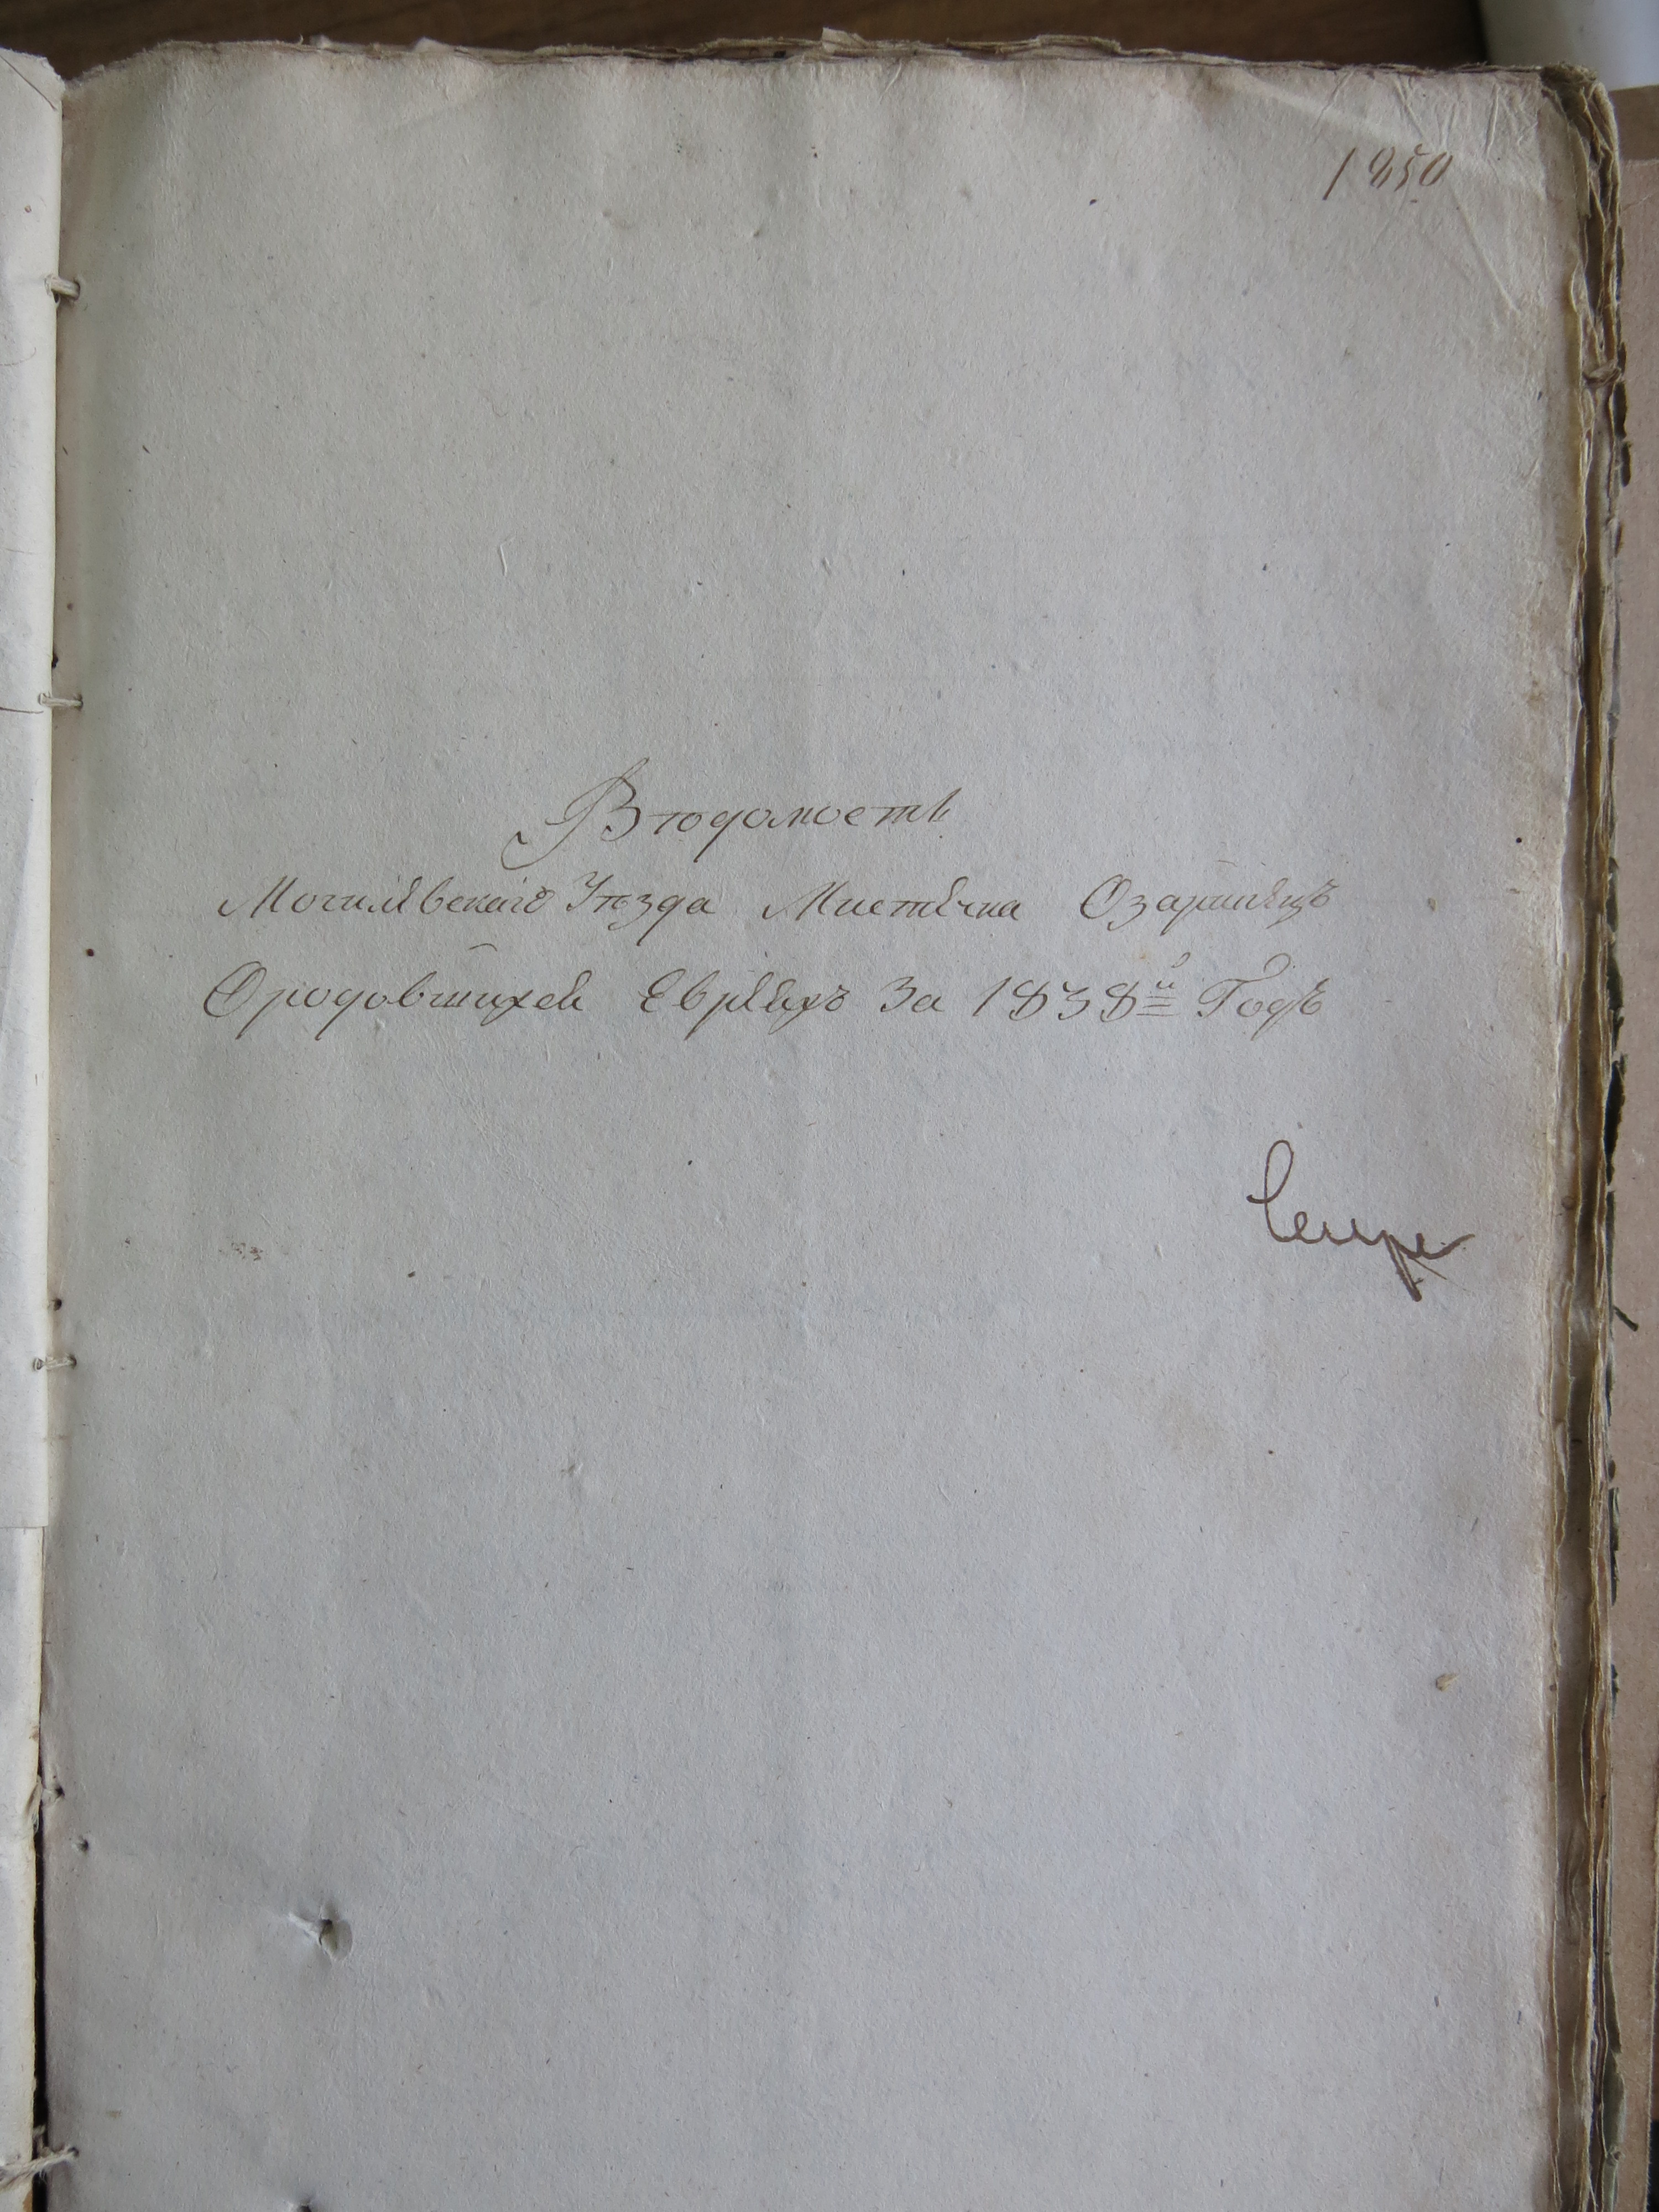 1850
Вѣдомость
Могилевскаго Уѣзда Мистечка Озаринецъ
О родовшихся Евреяхъ За 1838й Годъ